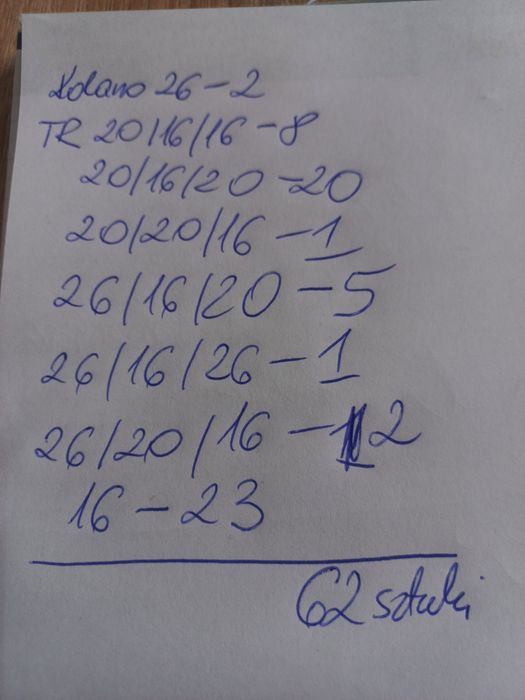 Kolano 26-2
TR 20/16/16-8
20/16/20-20
20/20/16-1
26/16/20-5
26/16/26-1
26/20/16-2
16-23
62 sztuki